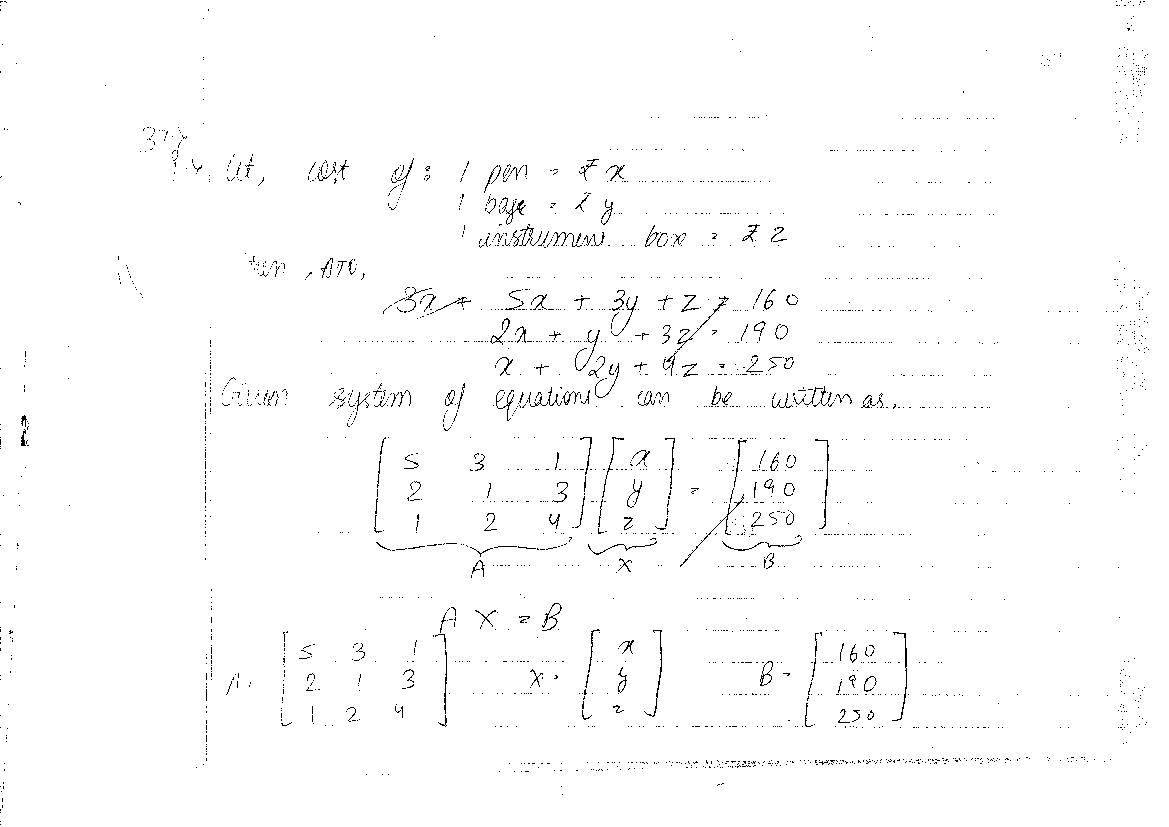 37.
Let, cost of: 1 pen = ₹ x
1 bage = ₹ y
1 instrument box = ₹ z
then, ATQ,
5x + 3y + z = 160
2x + y + 3z = 190
x + 2y + 4z = 250
Given system of equations can be written as,
[5 3 1] [x] = [160]
[2 1 3] [y] = [190]
[1 2 4] [z] = [250]
A X B
A X = B
A = [5 3 1] X = [x] B = [160]
[2 1 3] [y] [190]
[1 2 4] [z] [250]